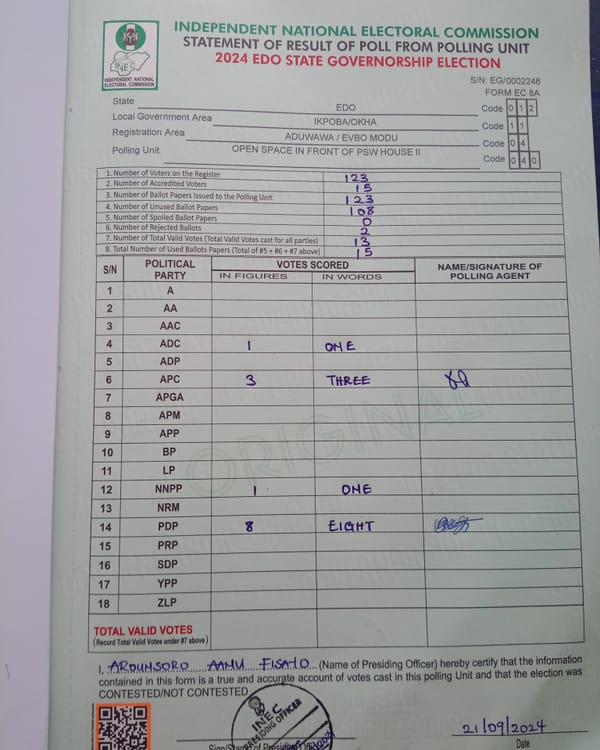 INDEPENDENT NATIONAL ELECTORAL COMMISSION
STATEMENT OF RESULT OF POLL FROM POLLING UNIT
2024 EDO STATE GOVERNORSHIP ELECTION
INEC
INDEPENDENT NATIONAL
ELECTORAL COMMISSION
S/N: EG/0002246
FORM EC 8A
State EDO Code 0 1 2
Local Government Area IKPOBA/OKHA Code 1 1
Registration Area ADUWAWA / EVBO MODU Code 0 4
Polling Unit OPEN SPACE IN FRONT OF PSW HOUSE II Code 0 4 0
1. Number of Voters on the Register 123
2. Number of Accredited Voters 15
3. Number of Ballot Papers Issued to the Polling Unit 123
4. Number of Unused Ballot Papers 108
5. Number of Spoiled Ballot Papers 0
6. Number of Rejected Ballots 2
7. Number of Total Valid Votes (Total Valid Votes cast for all parties) 13
8. Total Number of Used Ballots Papers (Total of #5 + #6 + #7 above) 15
S/N POLITICAL PARTY VOTES SCORED NAME/SIGNATURE OF POLLING AGENT
IN FIGURES IN WORDS
1 A
2 AA
3 AAC
4 ADC 1 ONE
5 ADP
6 APC 3 THREE
7 APGA
8 APM
9 APP
10 BP
11 LP
12 NNPP 1 ONE
13 NRM
14 PDP 8 EIGHT
15 PRP
16 SDP
17 YPP
18 ZLP
ORIGINAL
TOTAL VALID VOTES
(Record Total Valid Votes under #7 above)
I, (Name of Presiding Officer) hereby certify that the information
contained in this form is a true and accurate account of votes cast in this polling Unit and that the election was
CONTESTED/NOT CONTESTED
INEC
PRESIDING OFFICER
of Presiding
21/09/2024
Date